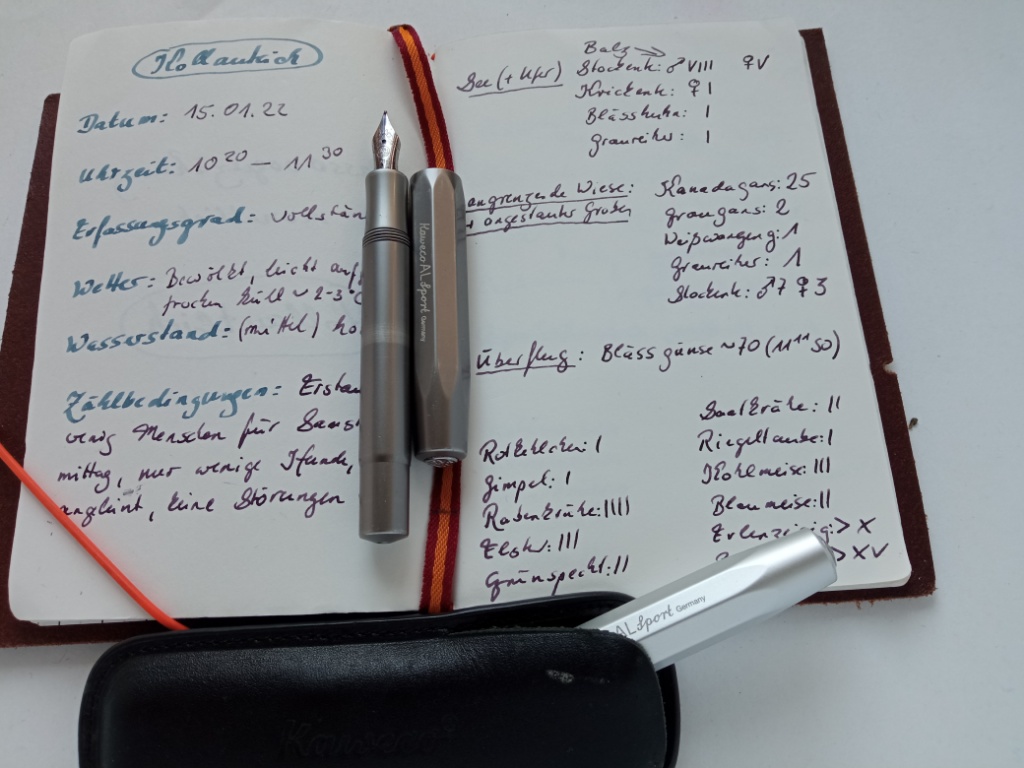 Datum: 15.01.22
Uhrzeit: 10 20 – 11 30
Erfassungsgrad: vollstän
Wetter: Bewölkt, leicht auf
trocken kühl ~ 2-3°C
Wasserstand: (mittel) ho
Zählbedingungen: Erstau
wenig Menschen für Sams
mittag, nur wenige Hunde,
angeleint, keine Störungen
Balz →
See (+ Ufer) Stockent: ♂ VIII ♀ V
Krickent: ♀ I
Blässhuhn: I
Graureiher: I
angrenzende Wiese: Kanadagans: 25
+ angestauter Graben Graugans: 2
Weißwangeng: 1
Graureiher: 1
Stockent: ♂ 7 ♀ 3
Überflug: Blässgänse ~ 70 (11 11 SO)
Saatkrähe: II
Rotkehlchen: I Ringeltaube: I
Gimpel: I Kohlmeise: III
Rabenkrähe: IIII Blaumeise: II
Elster: III Erlenzeisig: > X
Grünspecht: II > XV
Kaweco AL Sport Germany
AL Sport Germany
Kaweco